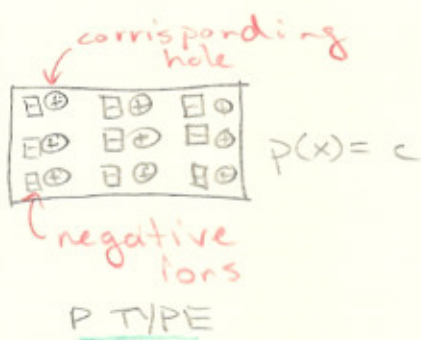 corrisponding
hole
p(x) = c
negative
ions
P TYPE